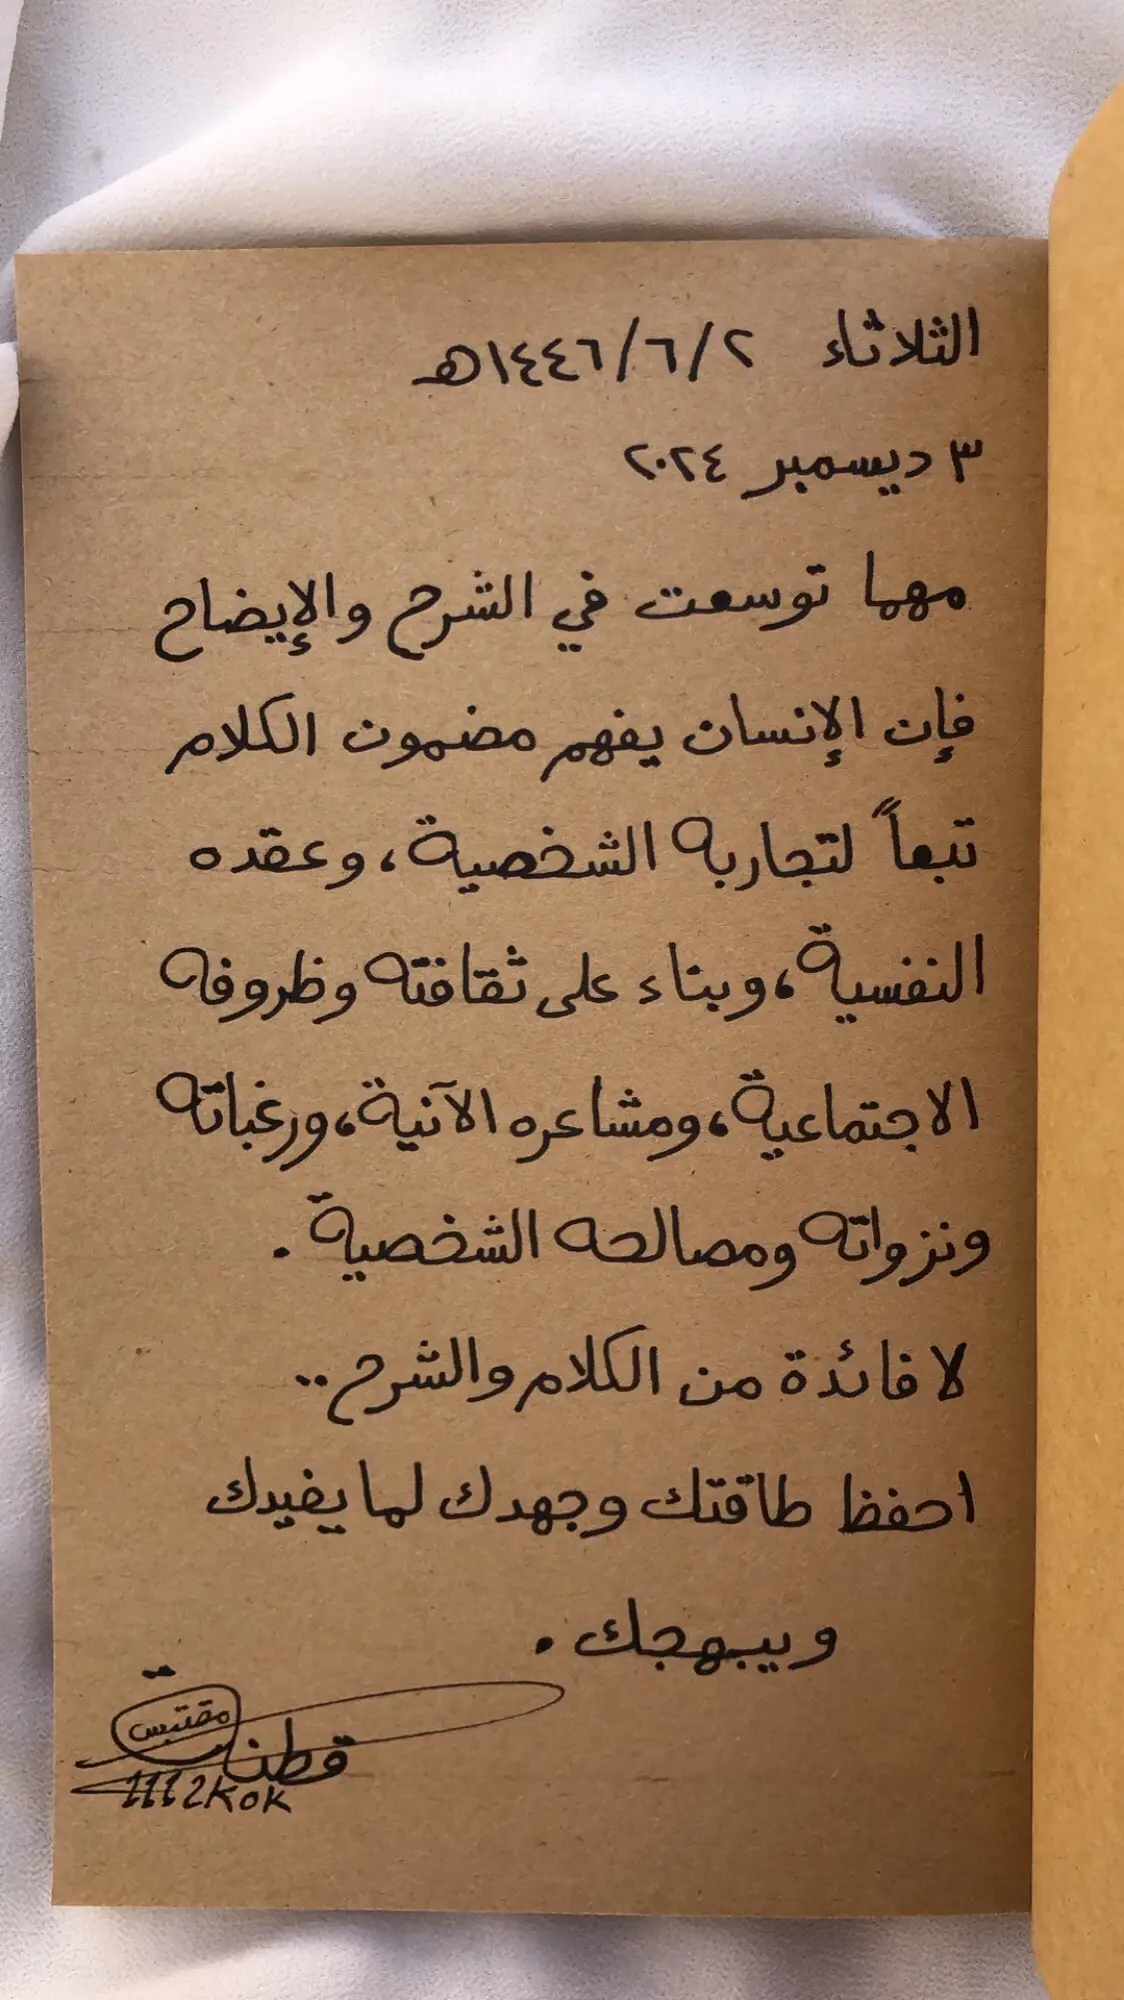 الثلاثاء ٢/٦/١٤٤٦هـ
٣ ديسمبر ٢٠٢٤
مهما توسعت في الشرح والإيضاح
فإن الإنسان يفهم مضمون الكلام
تبعاً لتجاربه الشخصية، وعقده
النفسية، وبناء على ثقافته وظروفه
الاجتماعية، ومشاعره الآنية، ورغباته
ونزواته ومصالحه الشخصية.
لا فائدة من الكلام والشرح..
احفظ طاقتك وجهدك لما يفيدك
ويبهجك.
مقتبس
1112kok